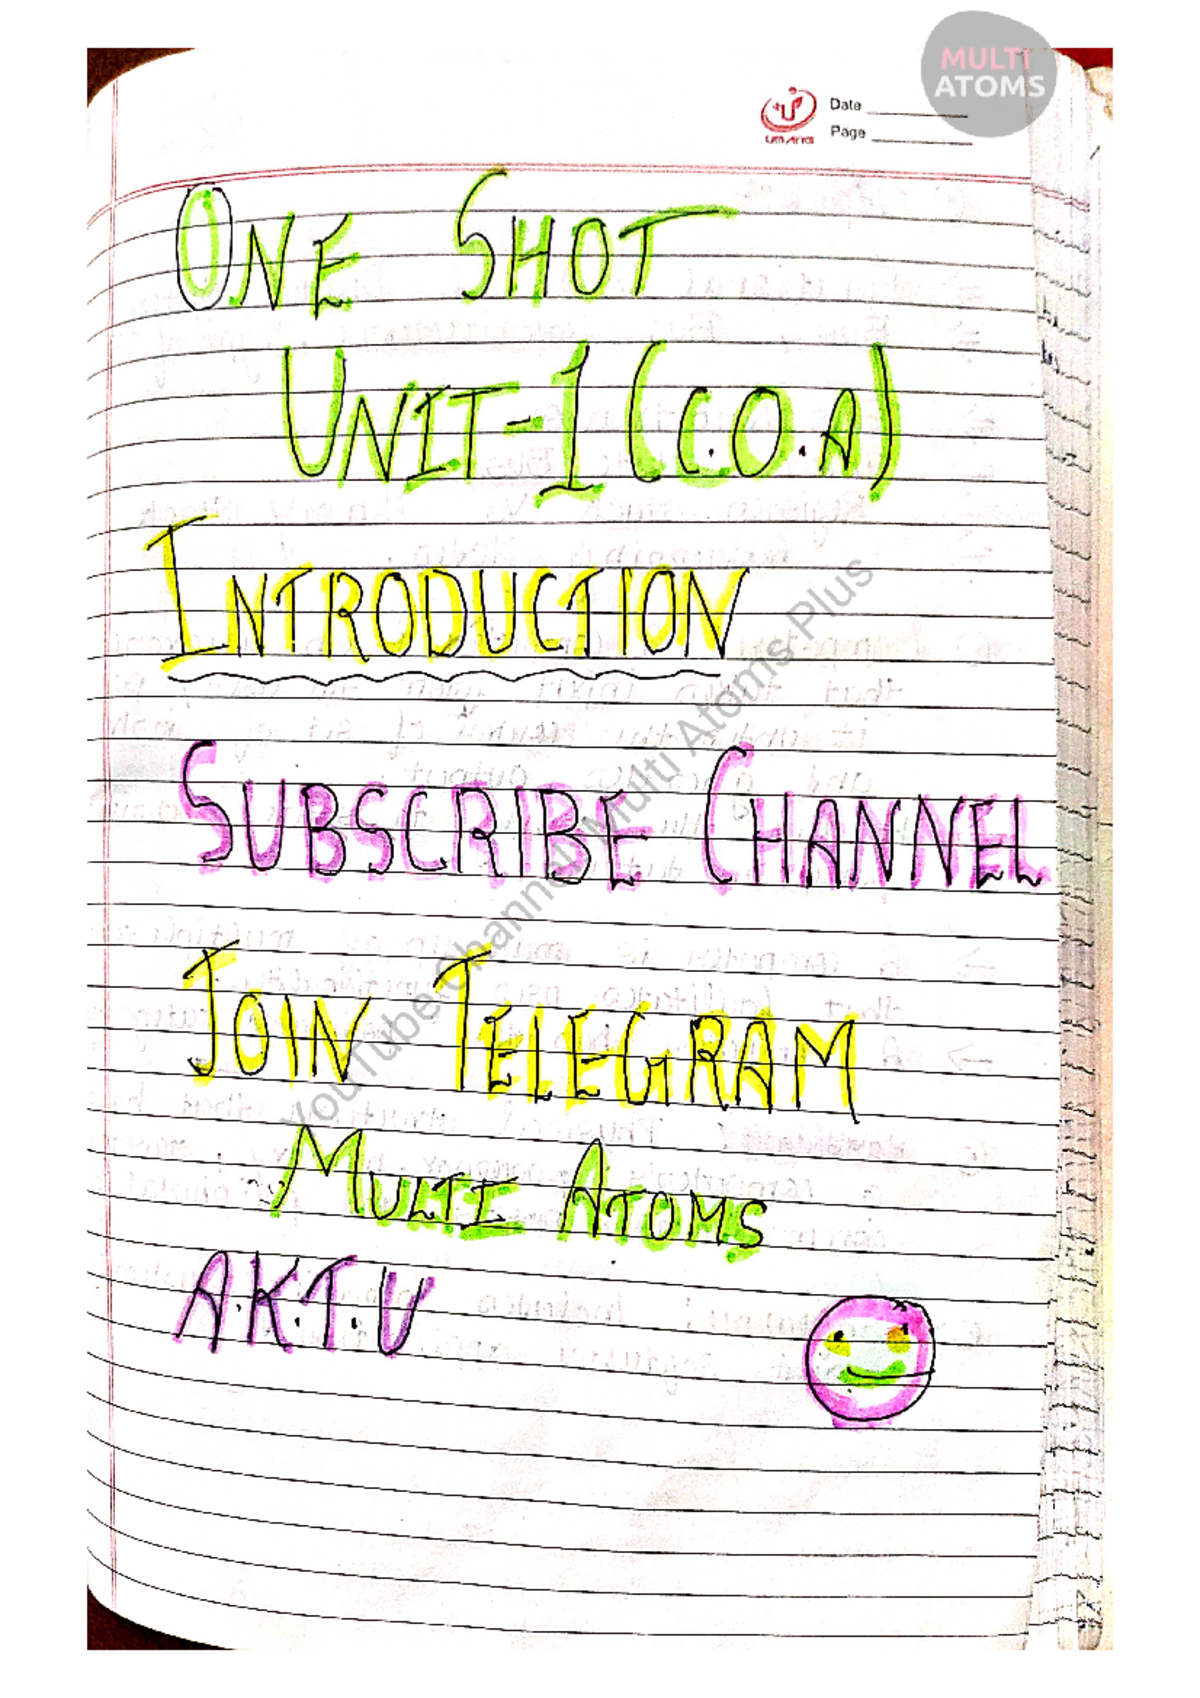 MULTI
ATOMS
Date
Page
ONE SHOT
UNIT-1 (C.O.A)
INTRODUCTION
SUBSCRIBE CHANNEL
JOIN TELEGRAM
MULTI ATOMS
A.K.T.U
YouTube Channel: Multi Atoms Plus